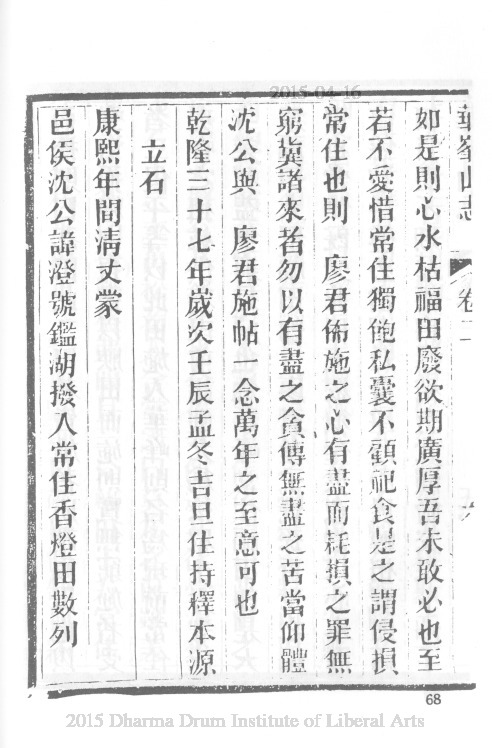 2015-04-16
華峯山志 卷二 六
如是則心水枯福田廢欲期廣厚吾未敢必也至
若不愛惜常住獨飽私囊不顧祀食是之謂侵損
常住也則 廖君佈施之心有盡而耗損之罪無
窮冀諸來者勿以有盡之貪傳無盡之苦當仰體
沈公與 廖君施帖一念萬年之至意可也
乾隆三十七年歲次壬辰孟冬吉旦住持釋本源
立石
康熙年間清丈蒙
邑侯沈公諱澄號鑑湖撥入常住香燈田數列
68
2015 Dharma Drum Institute of Liberal Arts